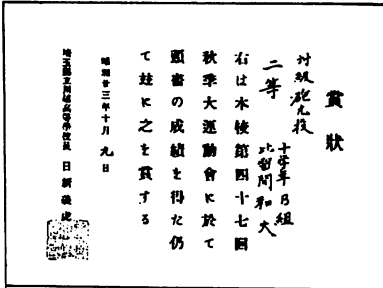 賞狀
対級砲丸投
二等
十学年B組
比留間和夫
右は本校第四十七回
秋季大運動會に於て
頭書の成績を得た仍
て玆に之を賞する
昭和廿三年十月九日
埼玉縣立川越高等學校長 日新義虎